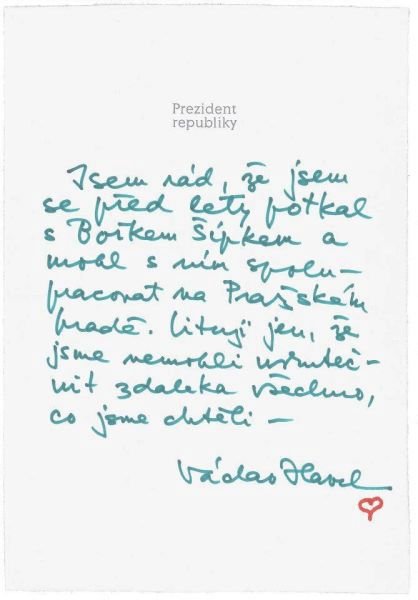 Prezident
republiky
Jsem rád, že jsem
se před lety potkal
s Bořkem Šípkem a
mohl s ním spolu-
pracovat na Pražském
hradě. Lituji jen, že
jsme nemohli uskuteč-
nit zdaleka všechno,
co jsme chtěli –
Václav Havel